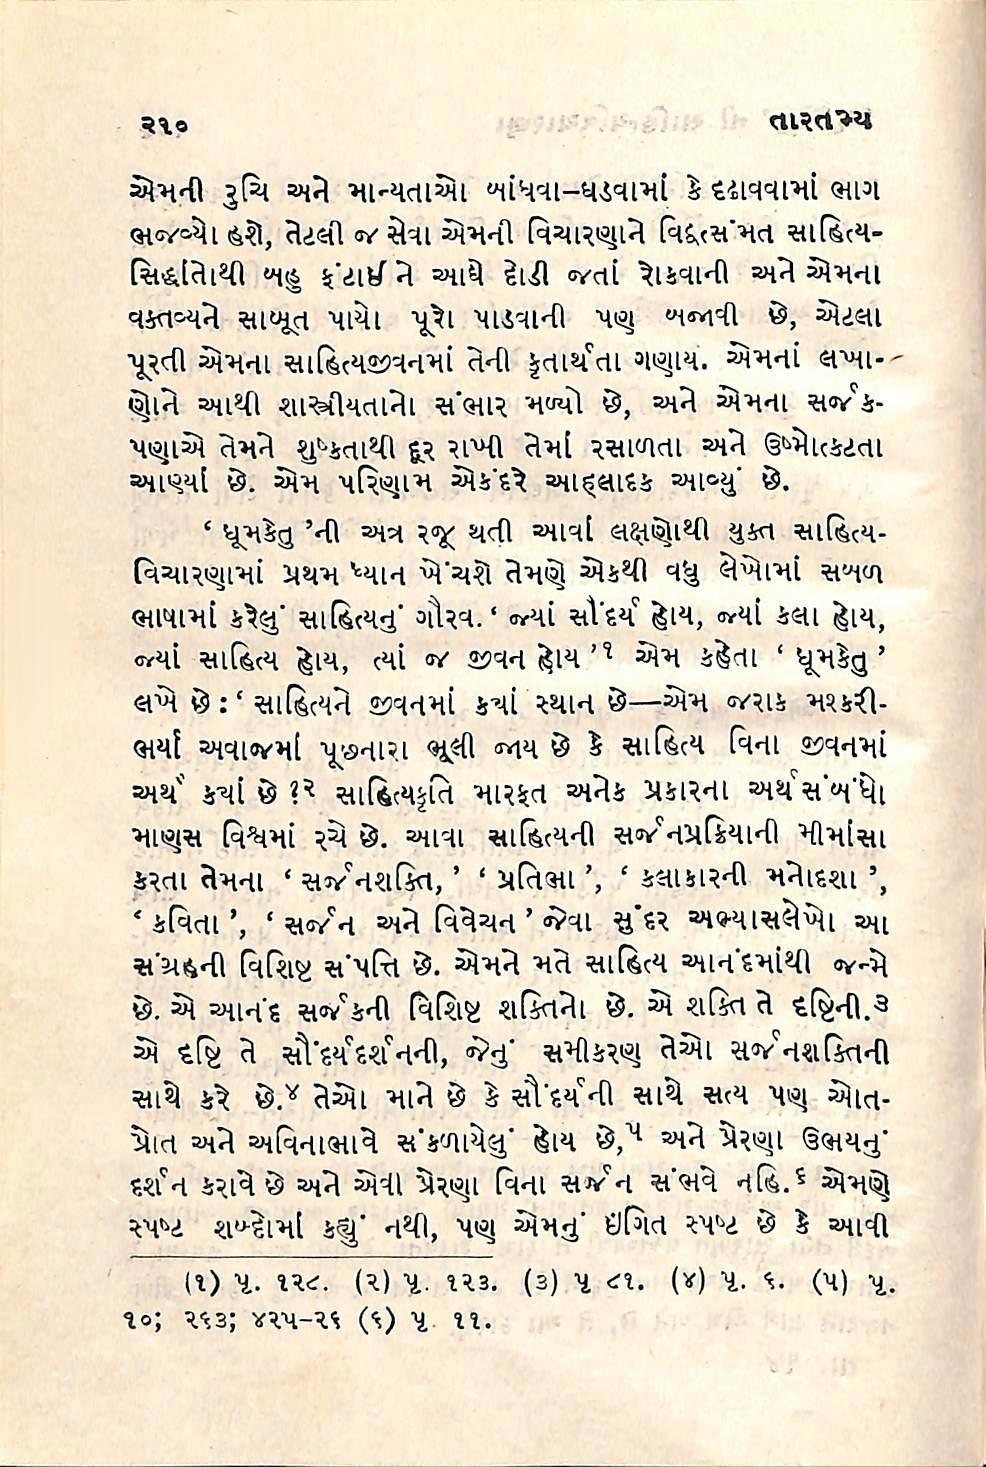 ૨૧૦ તારતમ્ય
એમની રુચિ અને માન્યતાઓ બાંધવા–ઘડવામાં કે દઢાવવામાં ભાગ
ભજવ્યો હશે, તેટલી જ સેવા એમની વિચારણાને વિદ્વત્સંમત સાહિત્ય-
સિદ્ધાંતોથી બહુ ફંટાઈ ને આઘે દોડી જતાં રોકવાની અને એમના
વક્તવ્યને સાબૂત પાયો પૂરો પાડવાની પણ બજાવી છે, એટલા
પૂરતી એમના સાહિત્યજીવનમાં તેની કૃતાર્થતા ગણાય. એમનાં લખા-
ણોને આથી શાસ્ત્રીયતાનો સંભાર મળ્યો છે, અને એમના સર્જક-
પણાએ તેમને શુષ્કતાથી દૂર રાખી તેમાં રસાળતા અને ઉષ્માેત્કટતા
આણ્યાં છે. એમ પરિણામ એકંદરે આહ્લાદક આવ્યું છે.
‘ ધૂમકેતુ ’ની અત્ર રજૂ થતી આવાં લક્ષણોથી યુક્ત સાહિત્ય-
વિચારણામાં પ્રથમ ધ્યાન ખેંચશે તેમણે એકથી વધુ લેખોમાં સબળ
ભાષામાં કરેલું સાહિત્યનું ગૌરવ. ‘ જ્યાં સૌંદર્ય હોય, જ્યાં કલા હોય,
જ્યાં સાહિત્ય હોય, ત્યાં જ જીવન હોય ’૧ એમ કહેતા ‘ ધૂમકેતુ ’
લખે છે : ‘ સાહિત્યને જીવનમાં ક્યાં સ્થાન છે—એમ જરાક મશ્કરી-
ભર્યા અવાજમાં પૂછનારા ભૂલી જાય છે કે સાહિત્ય વિના જીવનમાં
અર્થ ક્યાં છે ?૨ સાહિત્યકૃતિ મારફત અનેક પ્રકારના અર્થસંબંધો
માણસ વિશ્વમાં રચે છે. આવા સાહિત્યની સર્જનપ્રક્રિયાની મીમાંસા
કરતા તેમના ‘ સર્જનશક્તિ, ’ ‘ પ્રતિભા ’, ‘ કલાકારની મનોદશા ’,
‘ કવિતા ’, ‘ સર્જન અને વિવેચન ’ જેવા સુંદર અભ્યાસલેખો આ
સંગ્રહની વિશિષ્ટ સંપત્તિ છે. એમને મતે સાહિત્ય આનંદમાંથી જન્મે
છે. એ આનંદ સર્જકની વિશિષ્ટ શક્તિનો છે. એ શક્તિ તે દૃષ્ટિની.૩
એ દૃષ્ટિ તે સૌંદર્યદર્શનની, જેનું સમીકરણ તેઓ સર્જનશક્તિની
સાથે કરે છે.૪ તેઓ માને છે કે સૌંદર્યની સાથે સત્ય પણ ઓત-
પ્રોત અને અવિનાભાવે સંકળાયેલું હોય છે,૫ અને પ્રેરણા ઉભયનું
દર્શન કરાવે છે અને એવી પ્રેરણા વિના સર્જન સંભવે નહિ.૬ એમણે
સ્પષ્ટ શબ્દોમાં કહ્યું નથી, પણ એમનું ઇંગિત સ્પષ્ટ છે કે આવી
(૧) પૃ. ૧૨૮. (૨) પૃ. ૧૨૩. (૩) પૃ ૮૧. (૪) પૃ. ૬. (૫) પૃ.
૧૦; ૨૬૩; ૪૨૫–૨૬ (૬) પૃ. ૧૧.